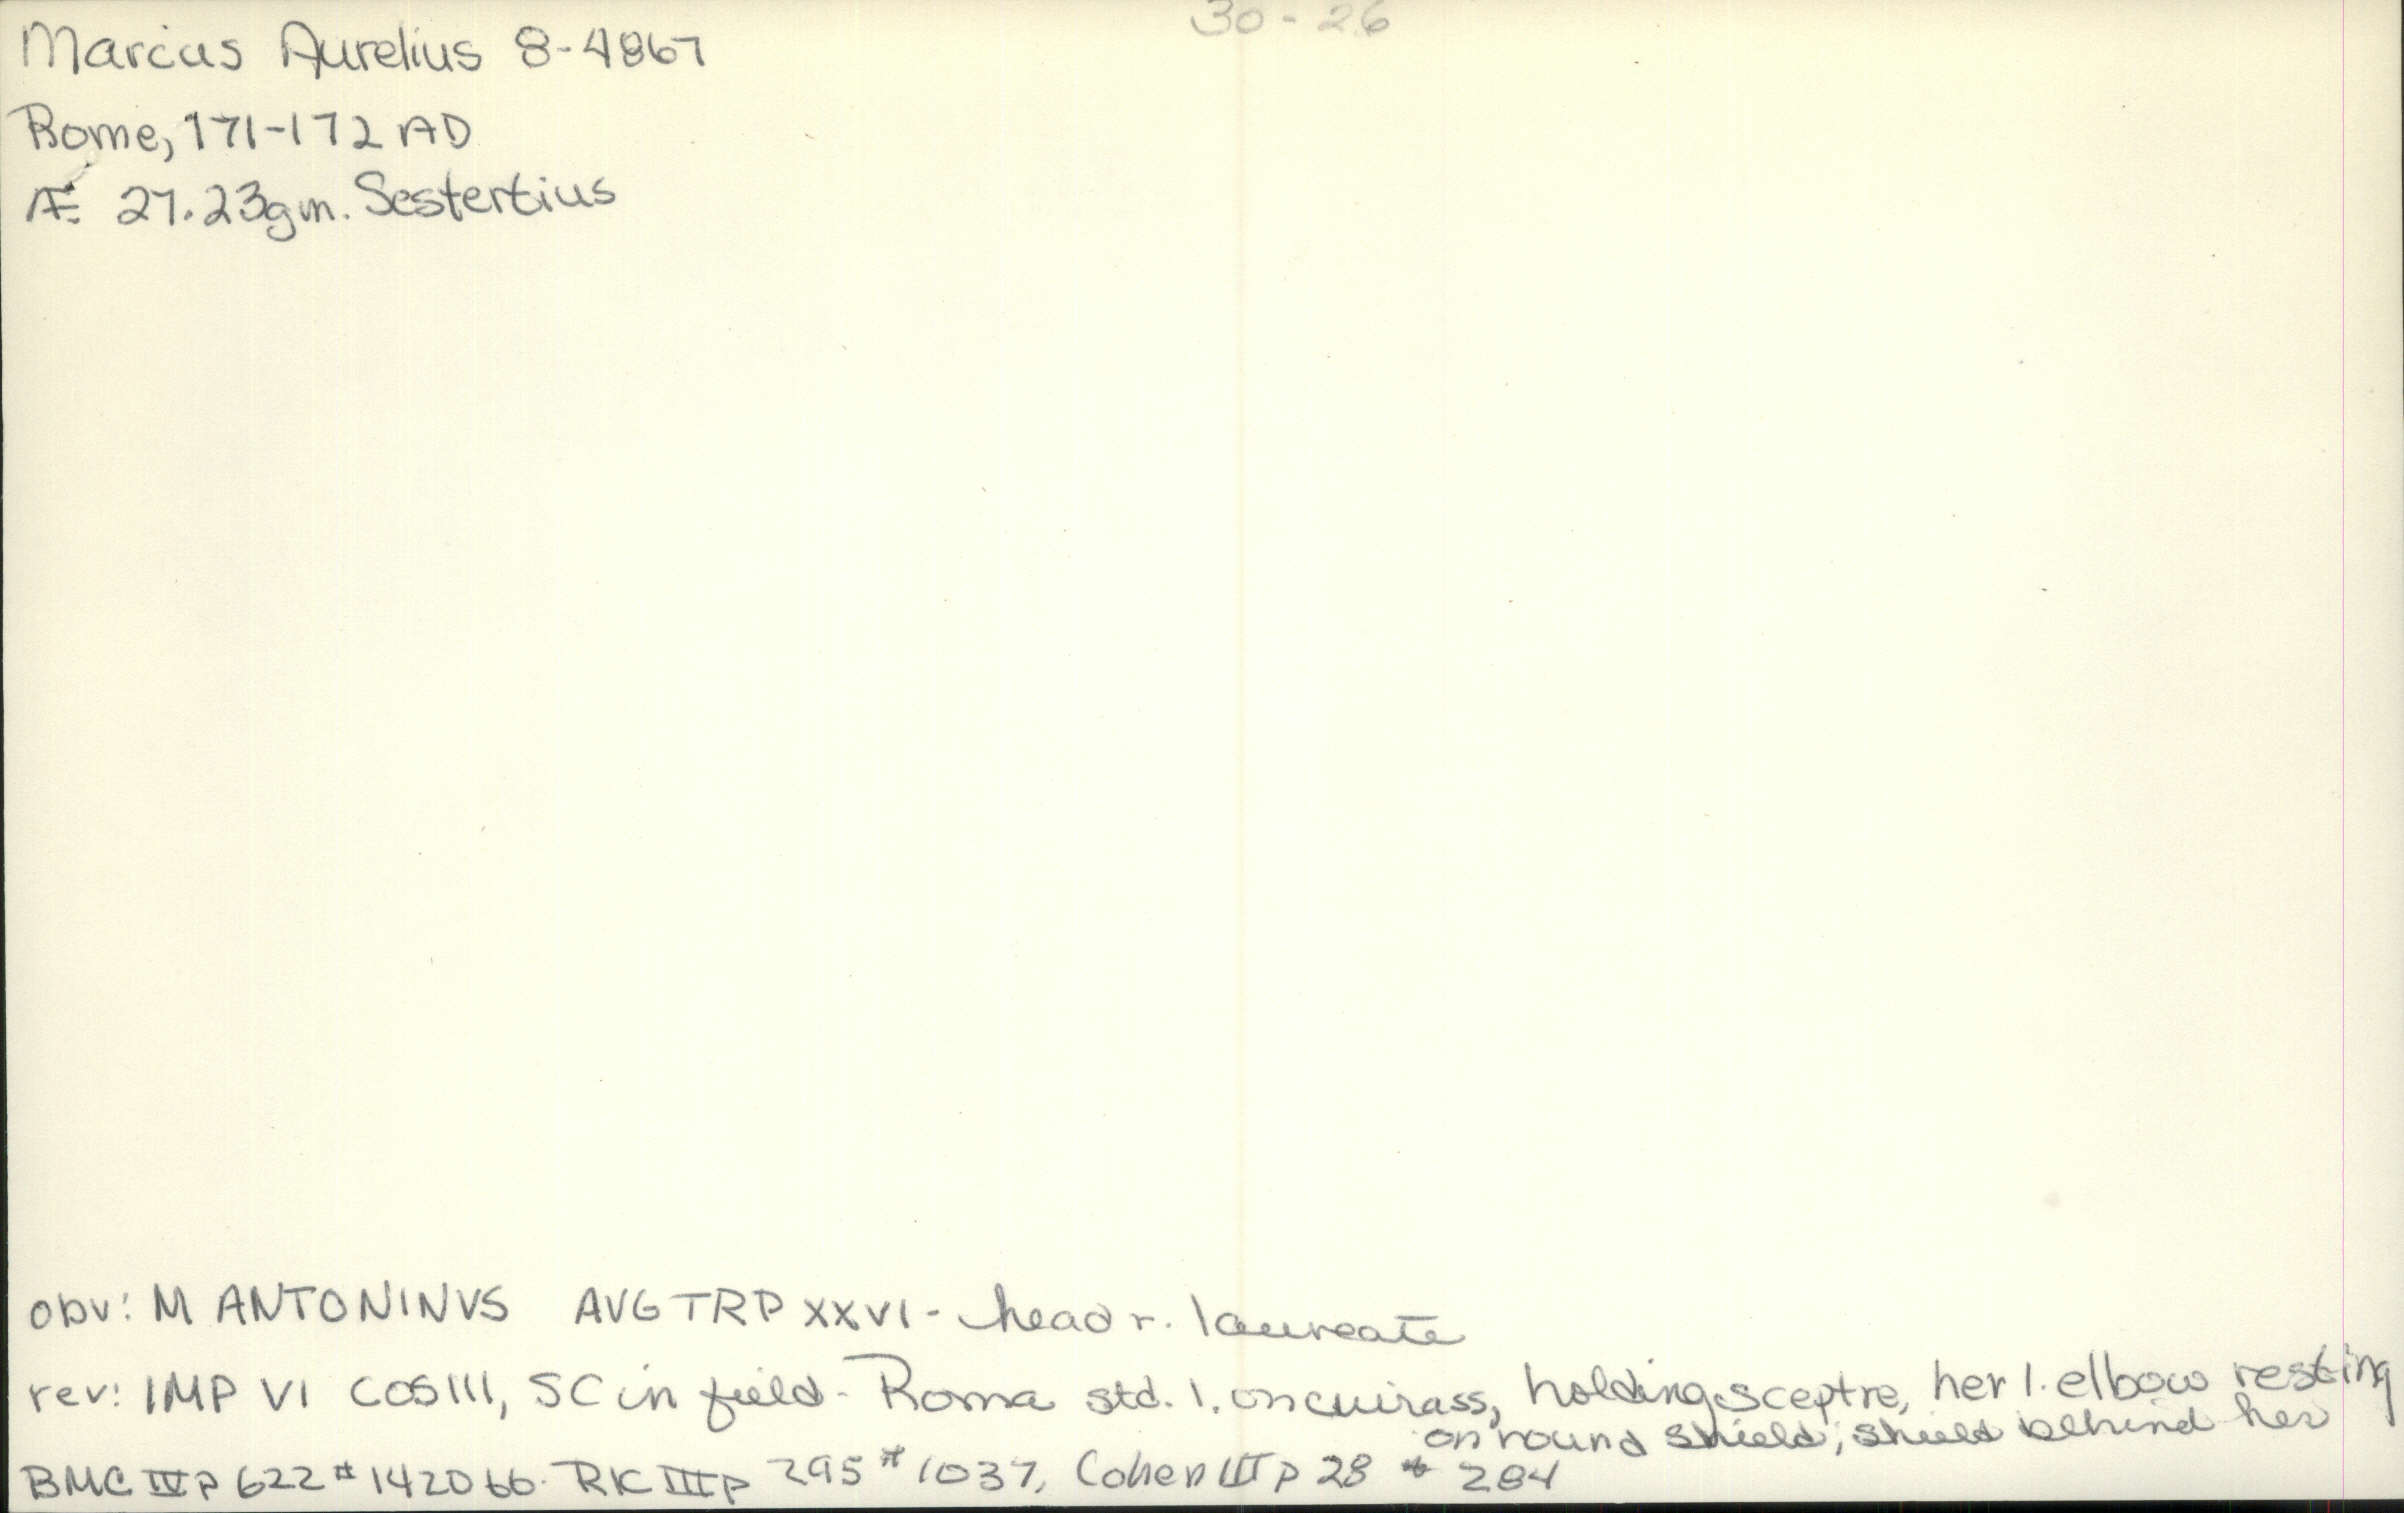 30-26
Marcus Aurelius 8-4867
Rome, 171-172 AD
Æ 27.23gm. Sestertius
obv: M ANTONINVS AVG TRP XXVI - head r. laureate
rev: IMP VI COS III, SC in field - Roma std. l. on cuirass, holding sceptre, her l. elbow resting
on round shield; shield behind her
BMC IV p 622 # 1420 RIC III p 295 # 1037, Cohen III p 28 # 284